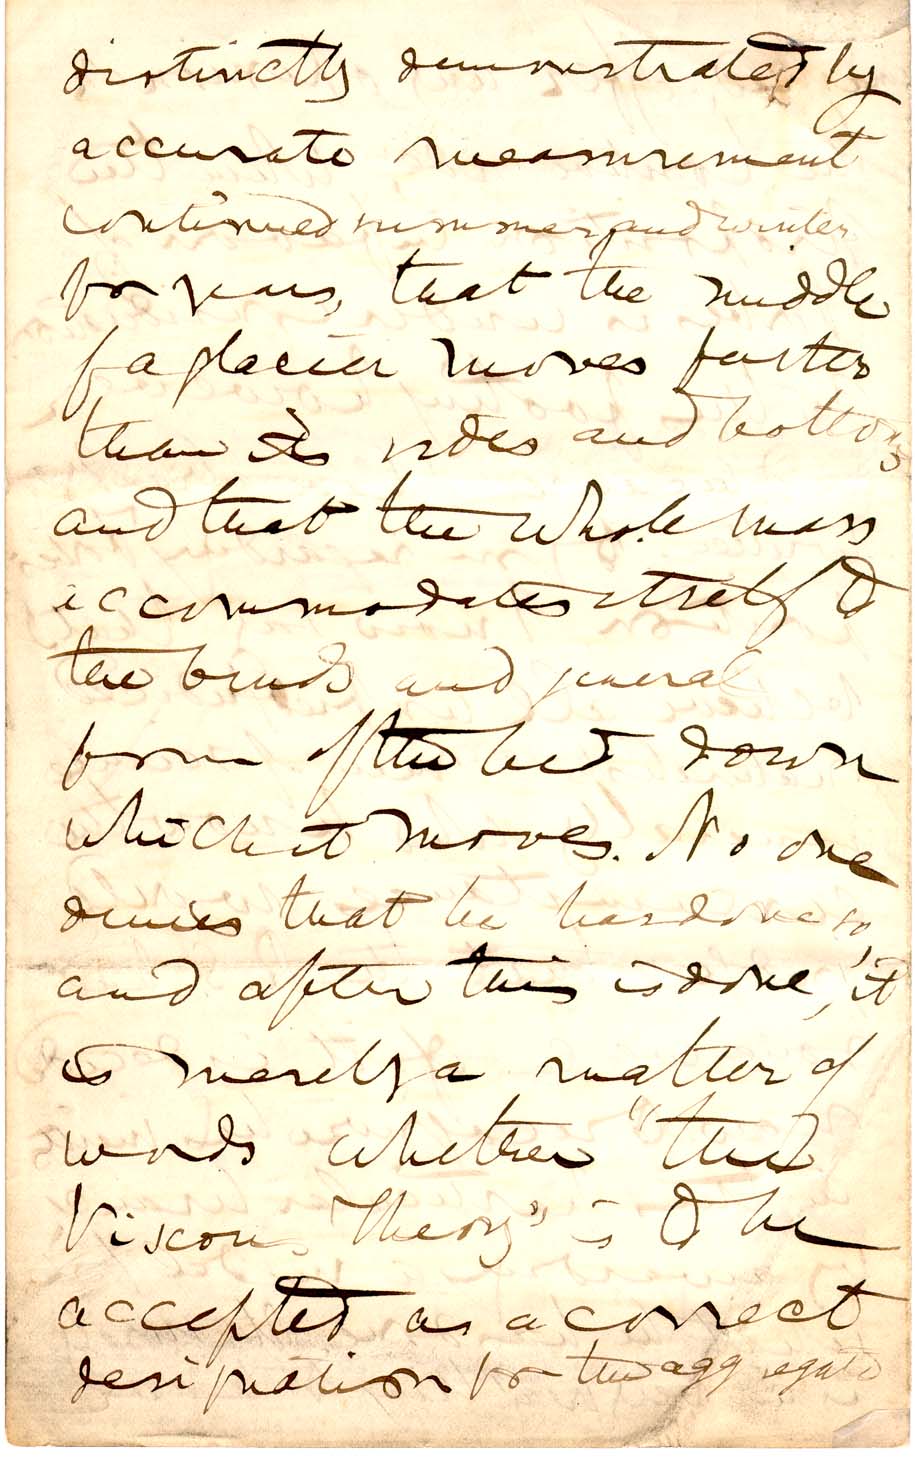 distinctly demonstrated by
accurate measurement
continued summer and winter
for years, that the middle
of a glacier moves faster
than its sides and bottom,
and that the whole mass
accommodates itself to
the bends and general
form of the bed down
which it moves. No one
denies that he has done so,
and after this is done, it
is merely a matter of
words whether "the
Viscous Theory" is to be
accepted as a correct
designation for the aggregate